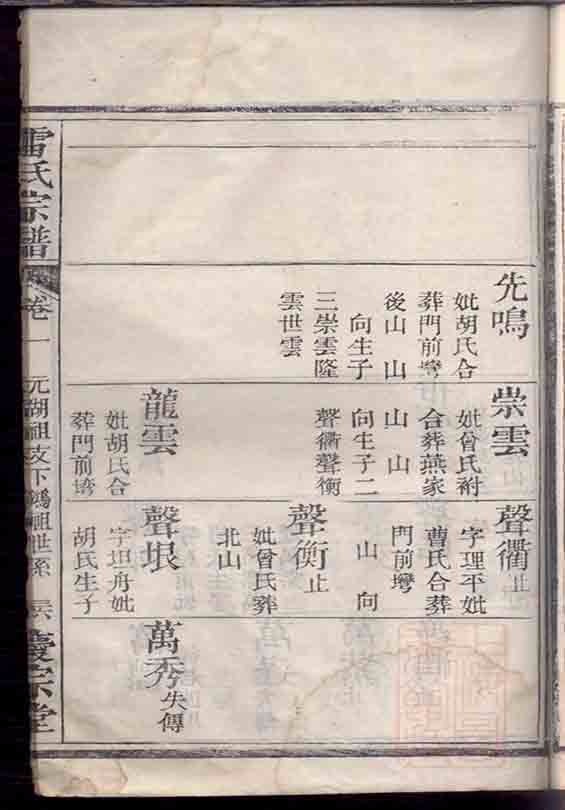 先鳴
妣胡氏合
葬門前塆
後山 山
向生子
三崇雲隆
雲世雲
崇雲
妣曾氏祔
合葬燕家
山 山
向生子二
聲衢聲衡
龍雲
妣胡氏合
葬門前塆
聲衢止
字理平妣
曹氏合葬
門前塆
山 向
聲衡止
妣曾氏葬
北山
聲垠
字坦舟妣
胡氏生子
萬秀失傳
雷氏宗譜
卷一
元湖祖支下鴻祖世系
慶宗堂